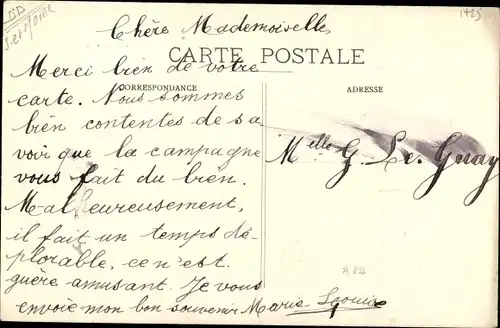 Chère Mademoiselle,
CARTE POSTALE
CORRESPONDANCE
ADRESSE
Merci bien de votre
carte. Nous sommes
bien contentes de sa-
voir que la campagne
vous fait du bien.
Malheureusement,
il fait un temps dé-
plorable, ce n'est
guère amusant. Je vous
envoie mon bon souvenir Marie-Louise
Melle G. Le Guay